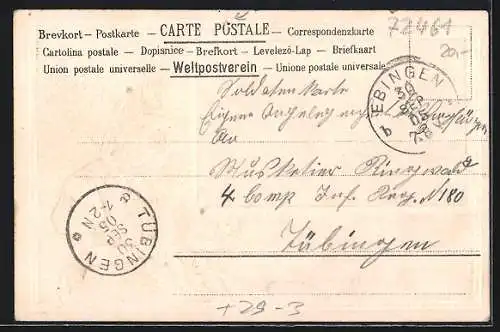 Brevkort - Postkarte - CARTE POSTALE - Correspondenzkarte
Cartolina postale - Dopisnice - Brefkort - Levelező-Lap - Briefkaart
Union postale universelle - Weltpostverein - Unione postale universale
72461
20,-
EBINGEN
30 SEP 05
b
Soldatenkarte
Eigene Angelegenheit des Empfängers
An
Musketier Ringwald
4 Comp Inf. Reg. N 180
Tübingen
TÜBINGEN
30 SEP 05
1-2 N
+29-3